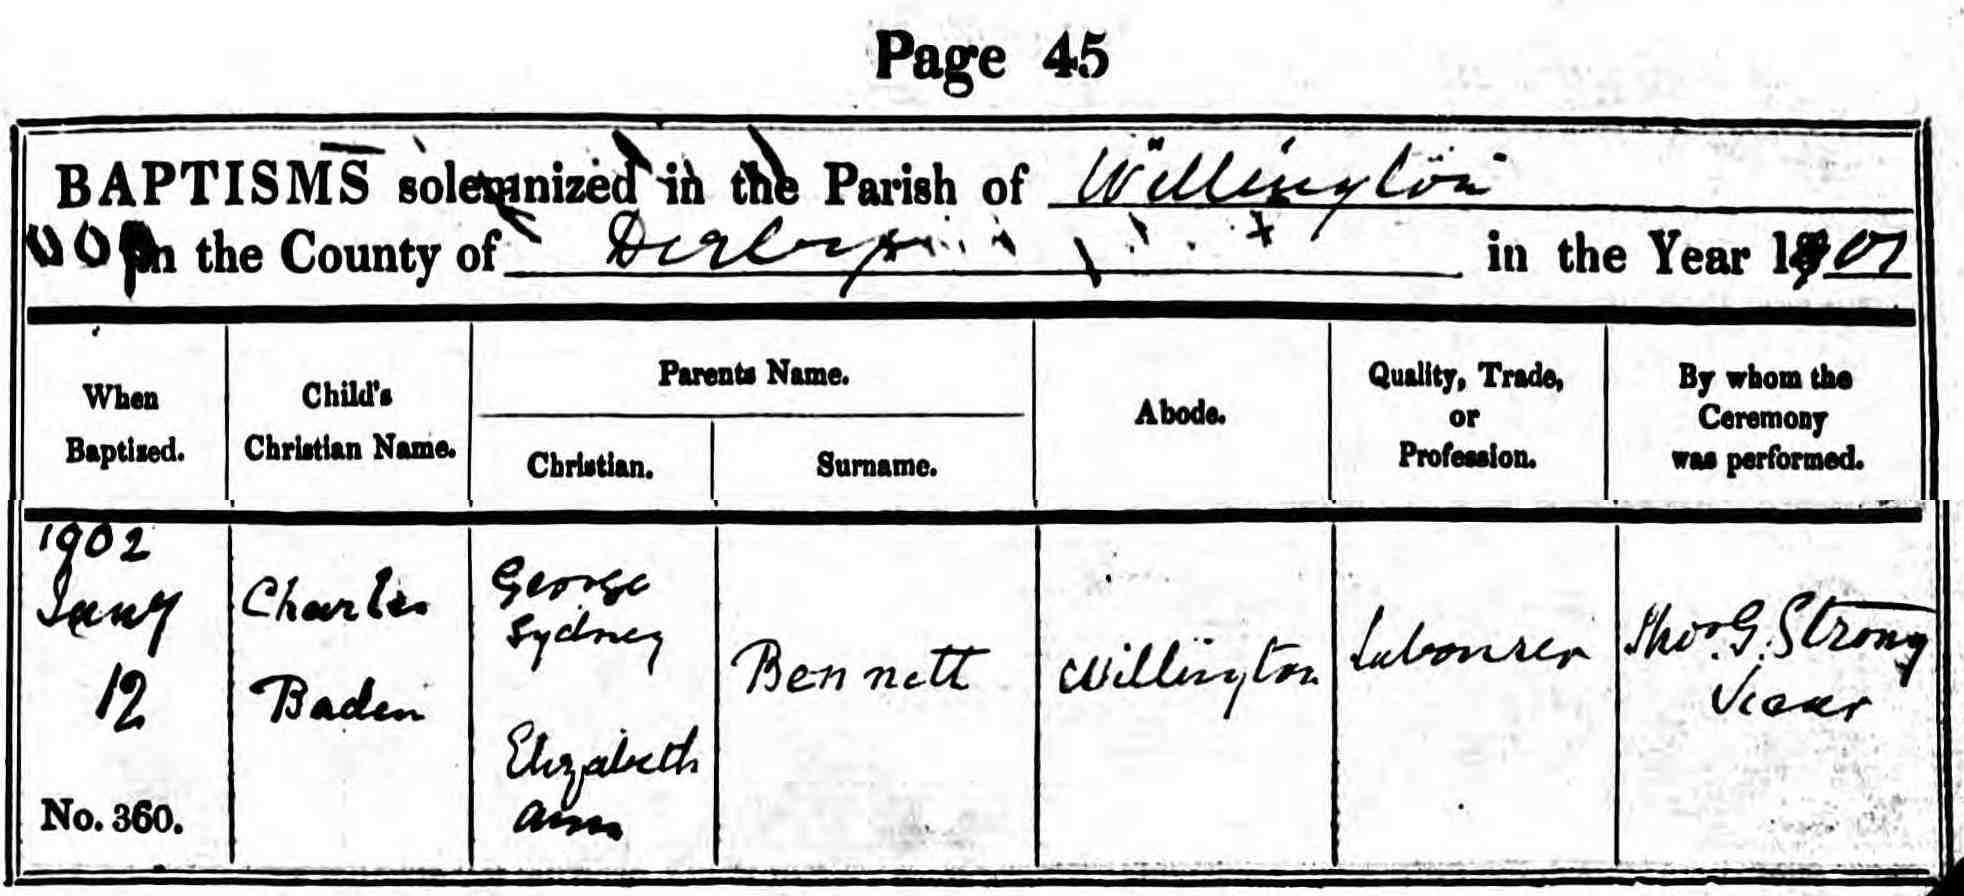 Page 45
BAPTISMS solemnized in the Parish of Willington
in the County of Derby in the Year 1901
When
Baptized.
Child's
Christian Name.
Parents Name.
Christian.
Surname.
Abode.
Quality, Trade,
or
Profession.
By whom the
Ceremony
was performed.
1902
Jany
12
No. 360.
Charles
Baden
George
Sydney
Elizabeth
Ann
Bennett
Willington
Labourer
Thos. G. Strong
Vicar